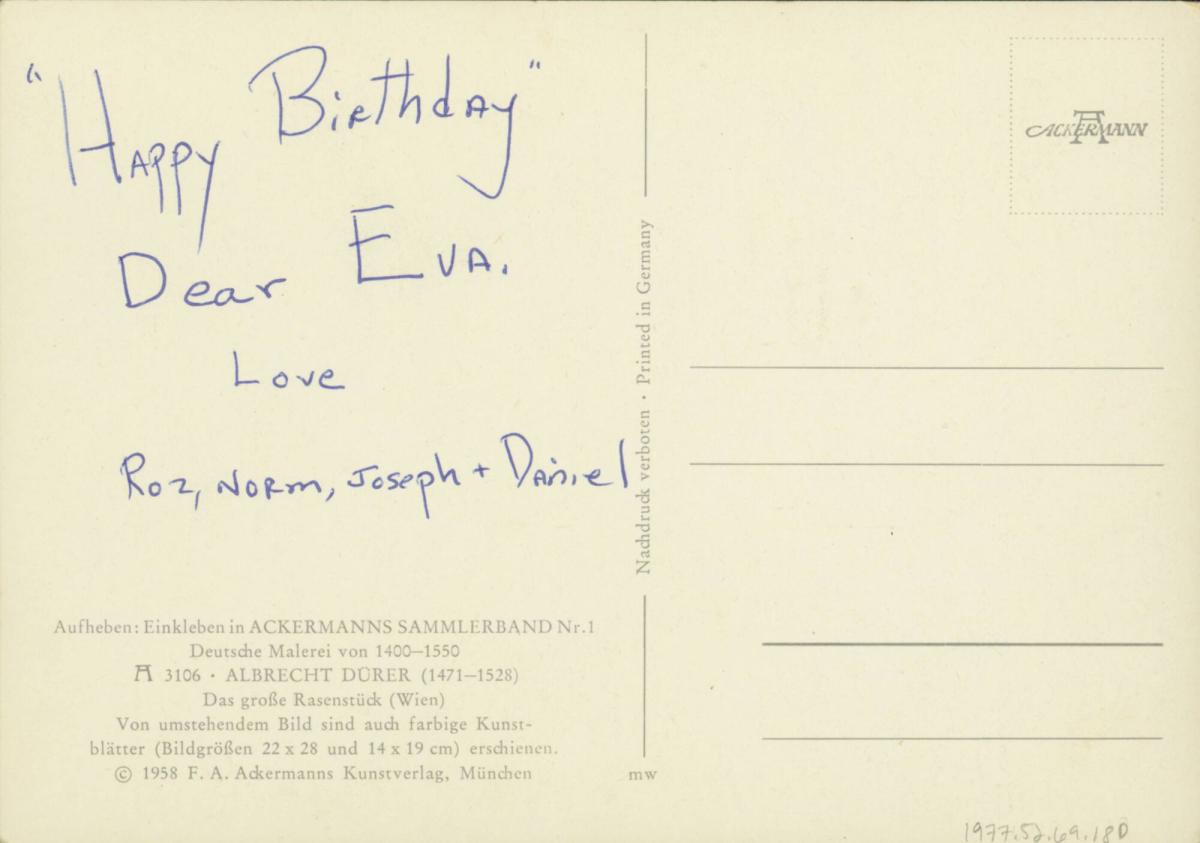 "Happy Birthday"
Dear Eva.
Love
Roz, Norm, Joseph + Daniel
Aufheben: Einkleben in ACKERMANNS SAMMLERBAND Nr. 1
Deutsche Malerei von 1400–1550
A 3106 · ALBRECHT DÜRER (1471–1528)
Das große Rasenstück (Wien)
Von umstehendem Bild sind auch farbige Kunst-
blätter (Bildgrößen 22 x 28 und 14 x 19 cm) erschienen.
© 1958 F. A. Ackermanns Kunstverlag, München
Nachdruck verboten · Printed in Germany
mw
ACKERMANN
1977.52.69.18D